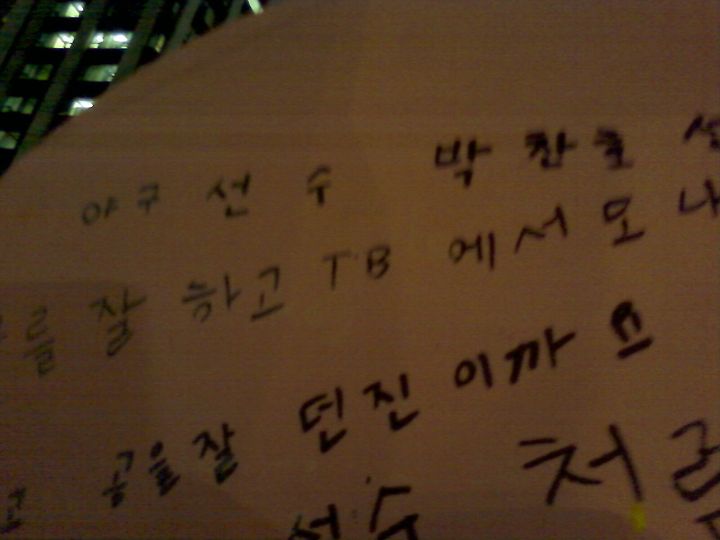 야구 선수 박찬호 선
를 잘 하고 TB 에서도 나
공을 잘 던진 이까 요
선수 처럼